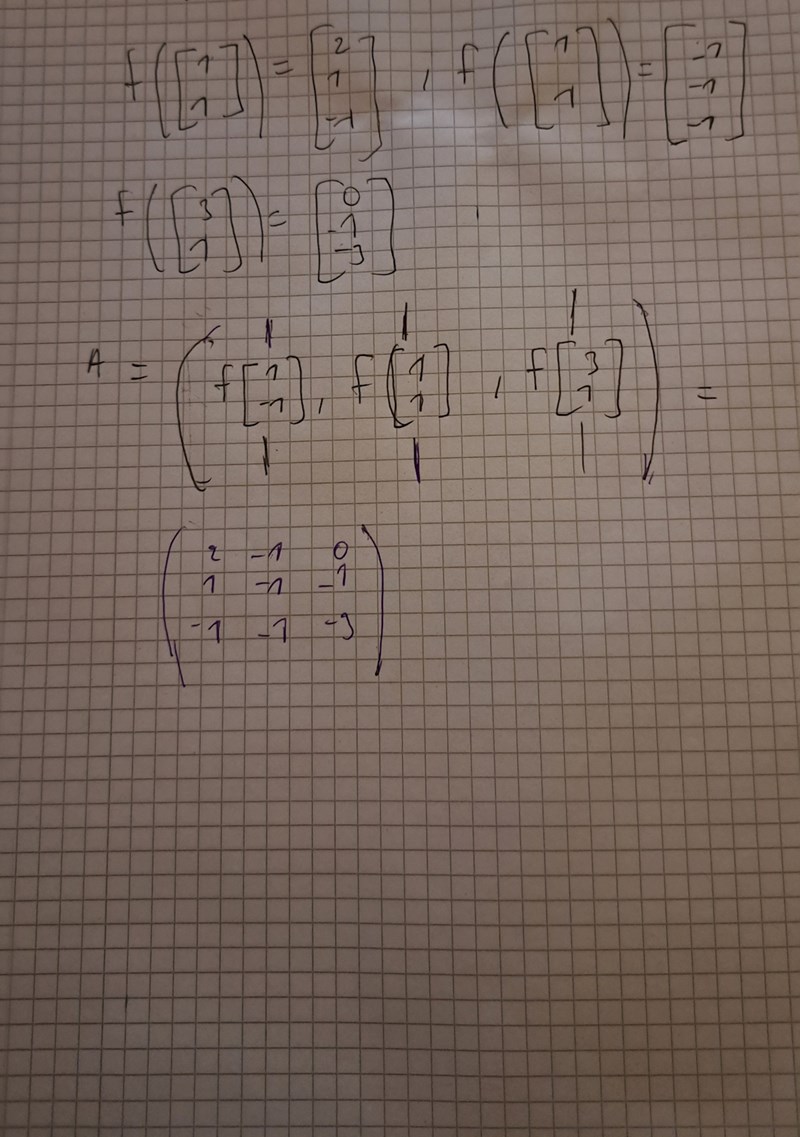 f([1 1]) = [2 1 -1] , f([1 1]) = [-1 -1 -1]
f([3 1]) = [0 -1 -3]
A = (f[1 -1], f[1 1], f[3 1]) =
(2 -1 0
1 -1 -1
-1 -1 -3)